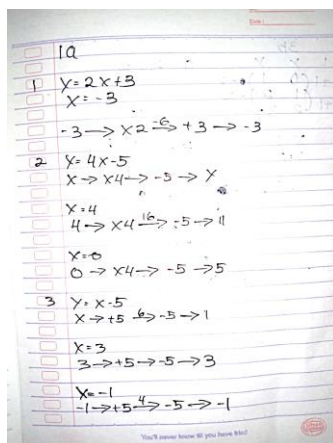 Date:
1a
1 y=2x+3
x=-3
-3→ x2 -6→ +3 → -3
2 y=4x-5
x→ x4→ -5 → y
x=4
4→ x4 16→ -5→ 11
x=0
0→ x4→ -5 →5
3 y=x-5
x→ +5 6→ -5→1
x=3
3→+5→-5→3
x=-1
-1→+5 4→ -5→ -1
You'll never know till you have tried